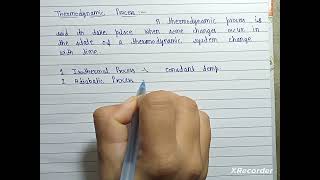 Thermodynamic Process :-
A thermodynamic process is
said to take place when some changes occur in
the state of a thermodynamic system change
with time.
1 Isothermal Process :- constant temp.
2 Adiabatic Process :
XRecorder